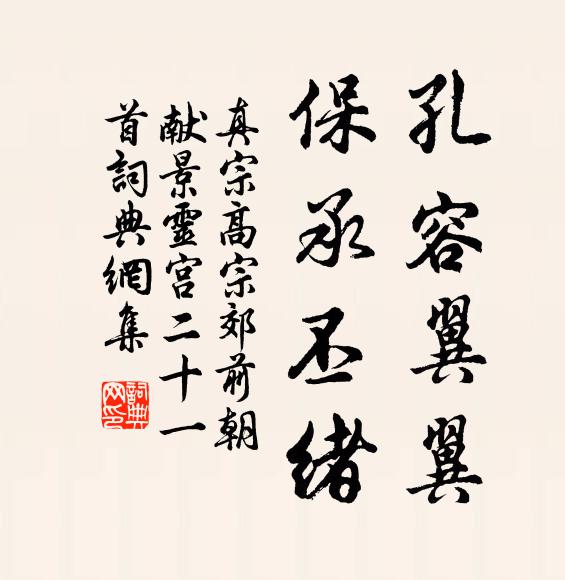 孔容翼翼
保承丕緒
真宗高宗郊前朝
献景靈宫二十一
首詞典網集
詞典網印